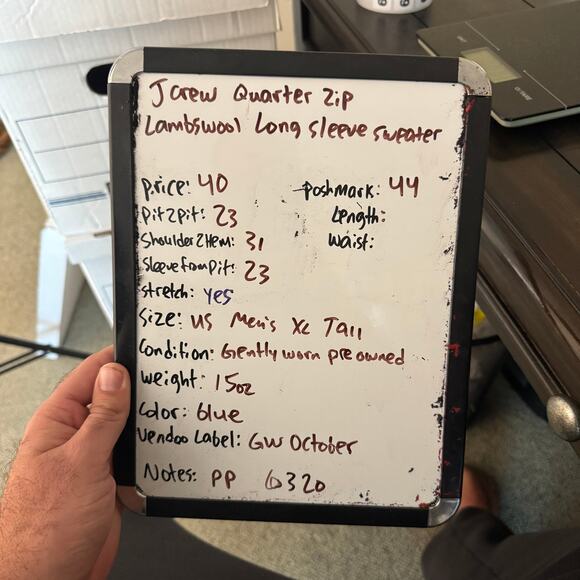 Jcrew Quarter Zip
Lambswool Long sleeve sweater
price: 40
poshmark: 44
Pit2pit: 23
Length:
Shoulder2Hem: 31
Waist:
Sleevefrompit: 23
stretch: yes
Size: US Men's XL Tall
Condition: Gently worn pre owned
weight: 15oz
Color: blue
Vendoo Label: GW October
Notes: PP 6320